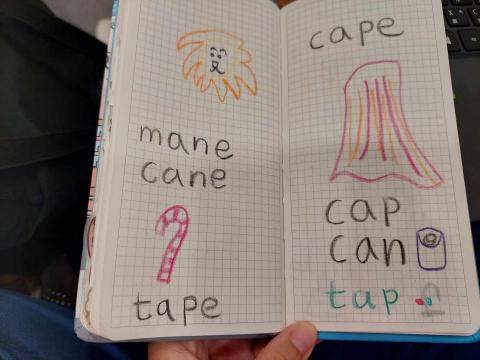 mane
cane
tape
cape
cap
can
tap